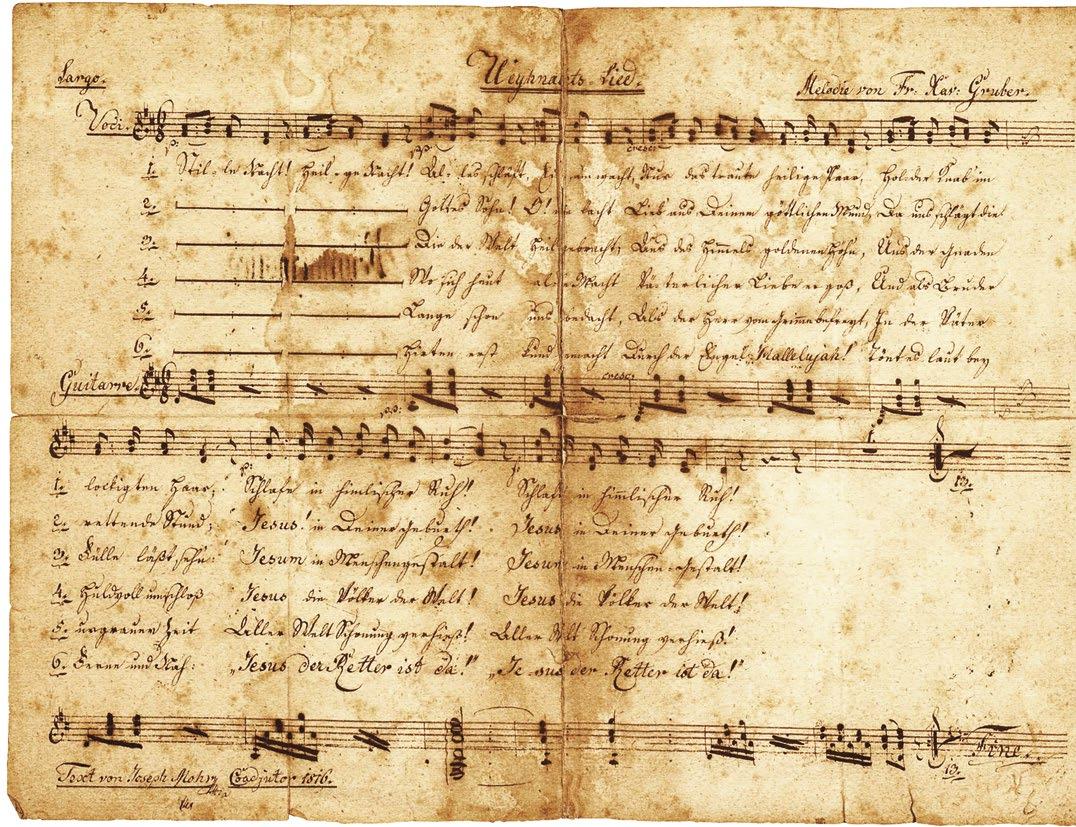 Largo.
Weyhnachts-Lied.
Melodie von Fr: Xav: Gruber.
Voci.
pp.
cresc:
1. Stil-le Nacht! Heil-ge Nacht! Al-les schläft, Ein wacht, Nur das traute heilige Paar, Holder Knab' im
2. Gottes Sohn! O! wie lacht Lieb aus Deinem göttlichen Mund, Da uns schlägt die
3. Die der Welt Heil gebracht, Aus des Himmels goldenen Höhn, Aus der Gnaden
4. Wo sich heut alle Macht Väterlicher Liebe ergoß, Und als Bruder
5. Lange schon uns bedacht, Als der Herr vom Grimme befreyt, In der Väter
6. Hirten erst kund gemacht Durch der Engel Hallelujah! Tönt es laut bey
Guitarre.
cresc:
pp.
p.
13.
1. lockigten Haar; Schlafe in himlischer Ruh! Schlafe in himlischer Ruh!
2. rettende Stund; Jesus! in Deiner Geburth! Jesus in Deiner Geburth!
3. Fülle läßt sehn: Jesum in Menschengestalt! Jesum in Menschen-Gestalt!
4. Huldvoll umschloß Jesus die Völker der Welt! Jesus die Völker der Welt!
5. urgrauer Zeit Aller Welt Schonung verhieß! Aller Welt Schonung verhieß!
6. Ferne und Nah: „Jesus der Retter ist da!" „Jesus der Retter ist da!"
Fine.
13.
Text von Joseph Mohr Coadjutor 1816.